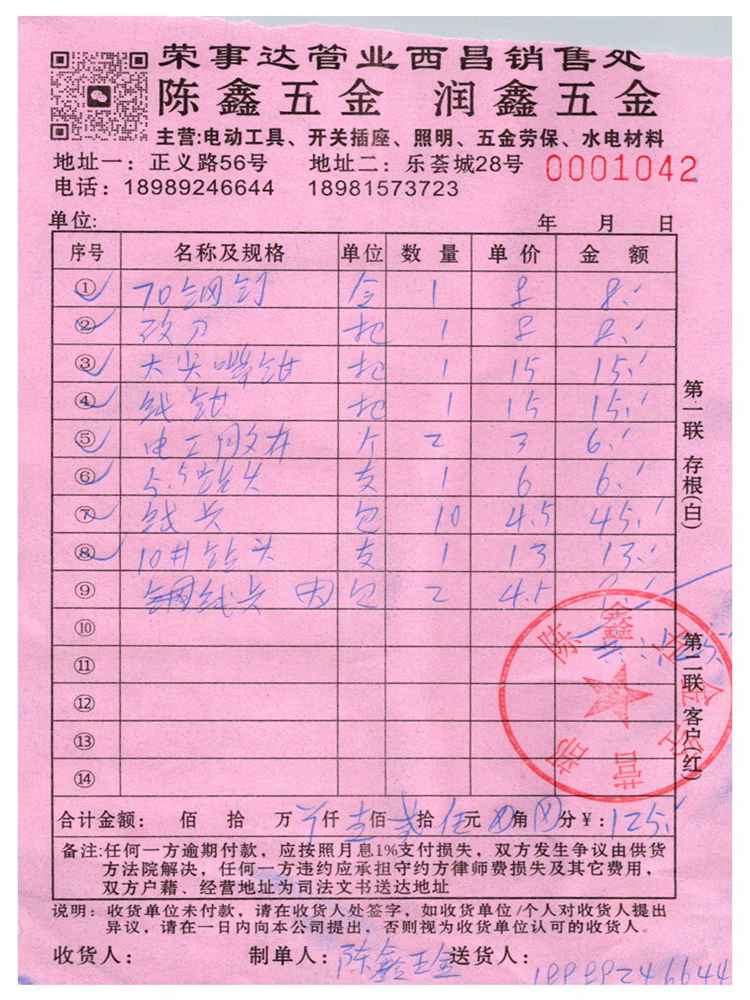 荣事达管业西昌销售处
陈鑫五金 润鑫五金
主营:电动工具、开关插座、照明、五金劳保、水电材料
地址一：正义路56号 地址二：乐荟城28号 0001042
电话：18989246644 18981573723
单位: 年 月 日
序号 名称及规格 单位 数量 单价 金额
① 70钢钉 盒 1 8 8.
② 砍刀 把 1 8 8.
③ 大尖嘴钳 把 1 15 15.
④ 钱钳 把 1 15 15.
⑤ 电工 个 2 3 6.
⑥ 5.5钻头 支 1 6 6.
⑦ 线卡 包 10 4.5 45.
⑧ 10#钻头 支 1 13 13.
⑨ 钢线卡 包 2 4.5 9.
⑩ 共:125.
⑪
⑫
⑬
⑭
第一联 存根(白)
第二联 客户(红)
陈鑫五金经营部
合计金额: 佰 拾 万 仟 壹佰 贰拾 伍元 角 分￥:125.
备注:任何一方逾期付款，应按照月息1%支付损失，双方发生争议由供货
方法院解决，任何一方违约应承担守约方律师费损失及其它费用，
双方户藉、经营地址为司法文书送达地址
说明：收货单位未付款，请在收货人处签字，如收货单位/个人对收货人提出
异议，请在一日内向本公司提出，否则视为收货单位认可的收货人。
收货人： 制单人：陈鑫五金 送货人：
18989246644